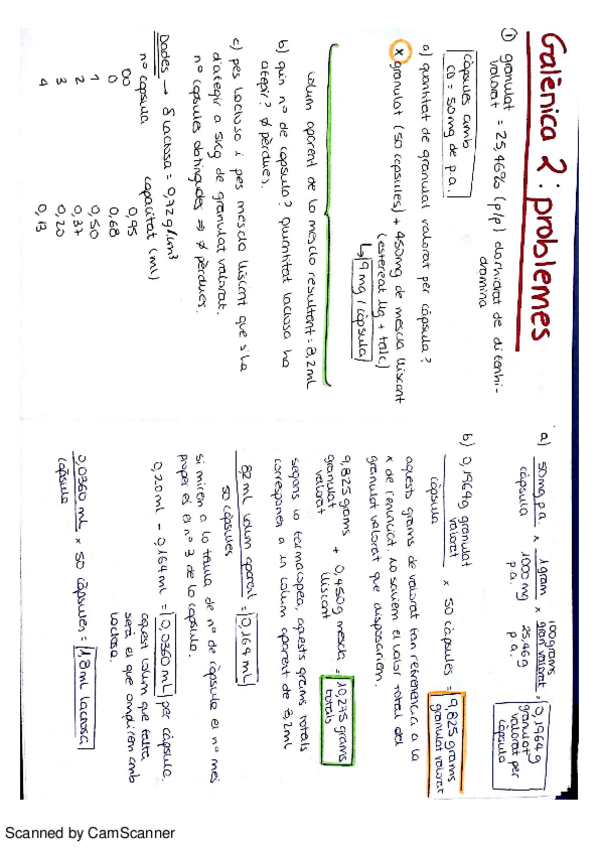 Galènica 2: problemes
① granulat valorat = 25,46% (p/p) clorhidrat de difenhi-
dramina
càpsules amb
CD = 50mg de p.a.
a) quantitat de granulat valorat per càpsula?
x granulat (50 càpsules) + 450mg de mescla lliscant
(estereat Mg + talc)
↳ 9 mg / càpsula
volum aparent de la mescla resultant = 8,2mL
b) quin nº de càpsula? quantitat lactosa ha
afegir? ø pèrdues.
c) pes lactosa i pes mescla lliscant que s'ha
d'afegir a 5Kg de granulat valorat.
nº càpsules obtingudes ⇒ ø pèrdues.
Dades → δ lactosa = 0,72g/cm³
nº capsula capacitat (ml)
00 0,95
0 0,68
1 0,50
2 0,37
3 0,20
4 0,13
a) 50mg p.a. / càpsula × 1 gram / 1000 mg p.a. × 100 grams gran valorat / 25,46g p.a. = 0,1964g granulat valorat per càpsula
b) 0,1964g granulat valorat / càpsula × 50 càpsules = 9,825 grams granulat valorat
aquests grams de valorat fan referència a la
x de l'enunciat. No sabem el valor total del
granulat valorat que disposariem.
9,825 grams granulat valorat + 0,450g mescla lliscant = 10,275 grams totals
segons la farmacopea, aquests grams totals
corresponen a un volum aparent de 8,2mL
82 mL volum aparent / 50 càpsules = 0,164 mL
si mirem a la taula de nº de càpsula el nº més
proper és el nº 3 de la capsula.
0,20 mL - 0,164 mL = 0,0360 mL per càpsula.
aquest volum que falta,
serà el que omplirem amb
lactosa.
0,0360 mL / càpsula × 50 càpsules = 1,8 mL lactosa
Scanned by CamScanner